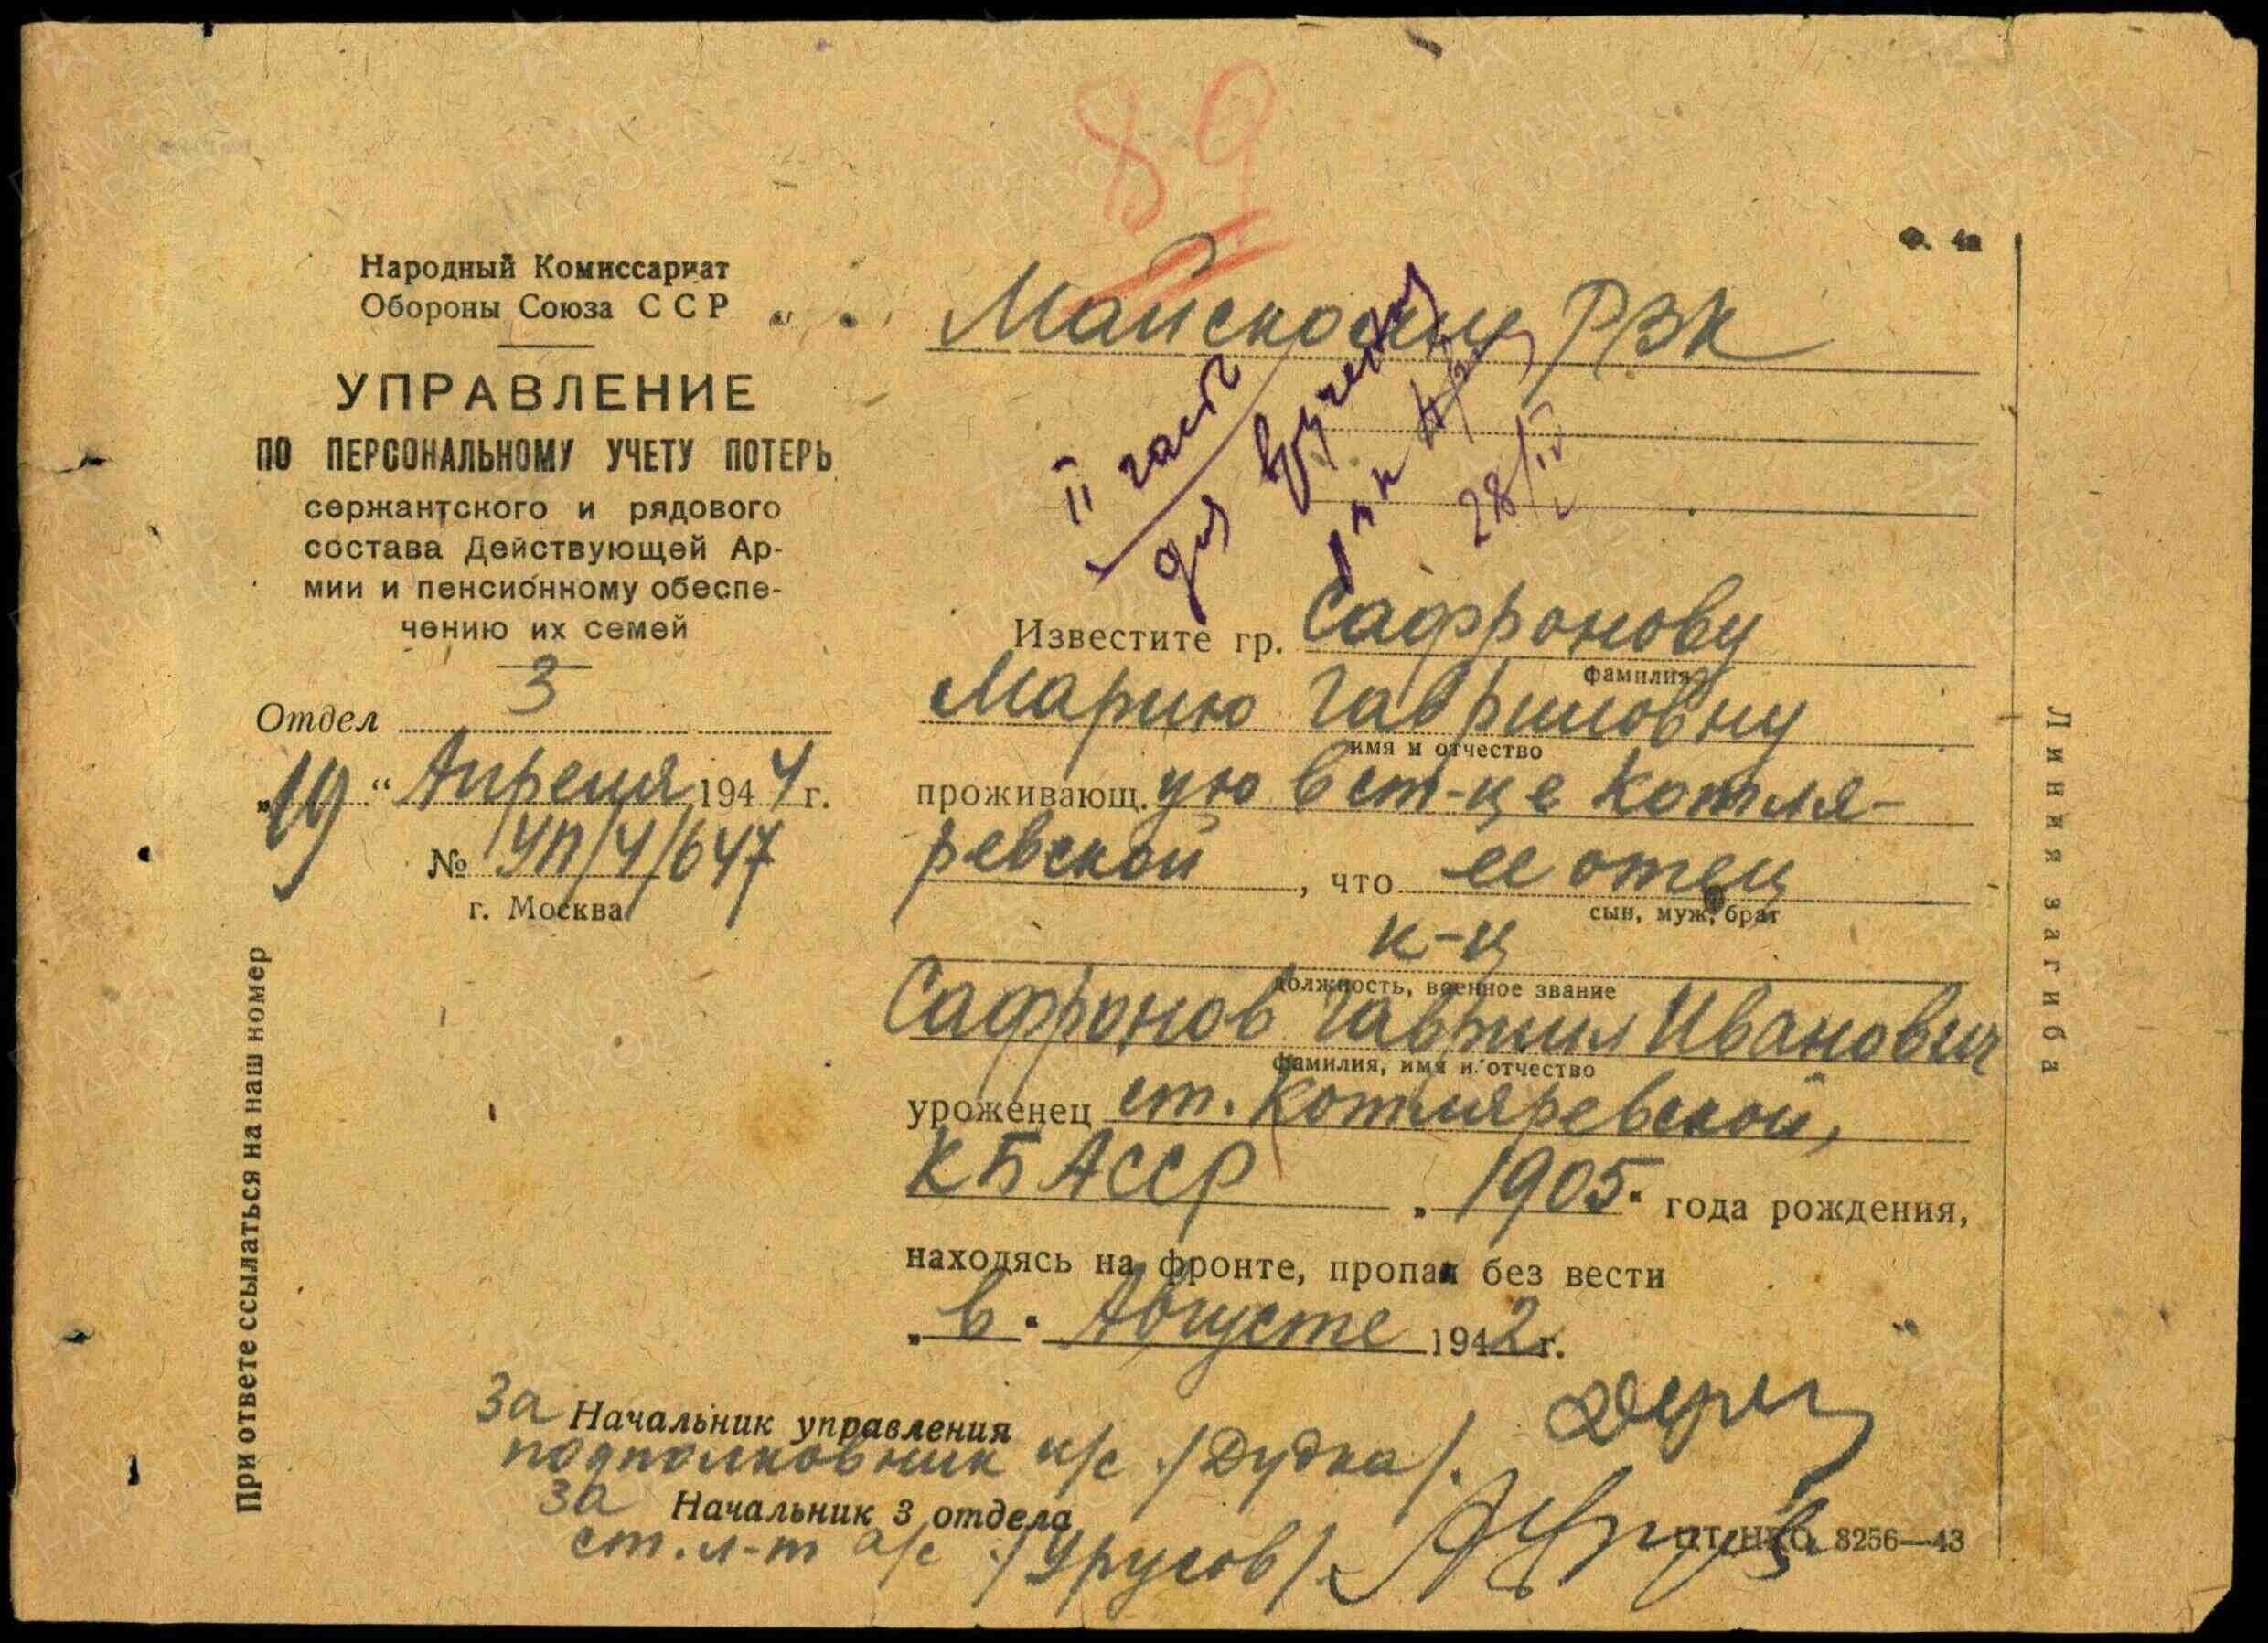 89
Ф. 4а
Народный Комиссариат
Обороны Союза ССР
УПРАВЛЕНИЕ
ПО ПЕРСОНАЛЬНОМУ УЧЕТУ ПОТЕРЬ
сержантского и рядового
состава Действующей Ар-
мии и пенсионному обеспе-
чению их семей
Отдел 3
„19“ Апреля 1944 г.
№ УП/4/647
г. Москва
При ответе ссылаться на наш номер
Майскому РВК
II часть
для вручения
28/IV
Известите гр. Сафронову
фамилия
Марию Гавриловну
имя и отчество
проживающ.ую в ст-це Котля-
ревской, что ее отец
сын, муж, брат
к-ц
должность, военное звание
Сафронов Гавриил Иванович
фамилия, имя и отчество
уроженец ст. Котляревской,
КБАССР „1905“ года рождения,
находясь на фронте, пропал без вести
„в“ Августе 1942 г.
За Начальник управления
подполковник и/с /Дудка/.
За Начальник 3 отдела
ст. л-т а/с /Урусов/.
ЦТ НКО 8256—43
Линия загиба